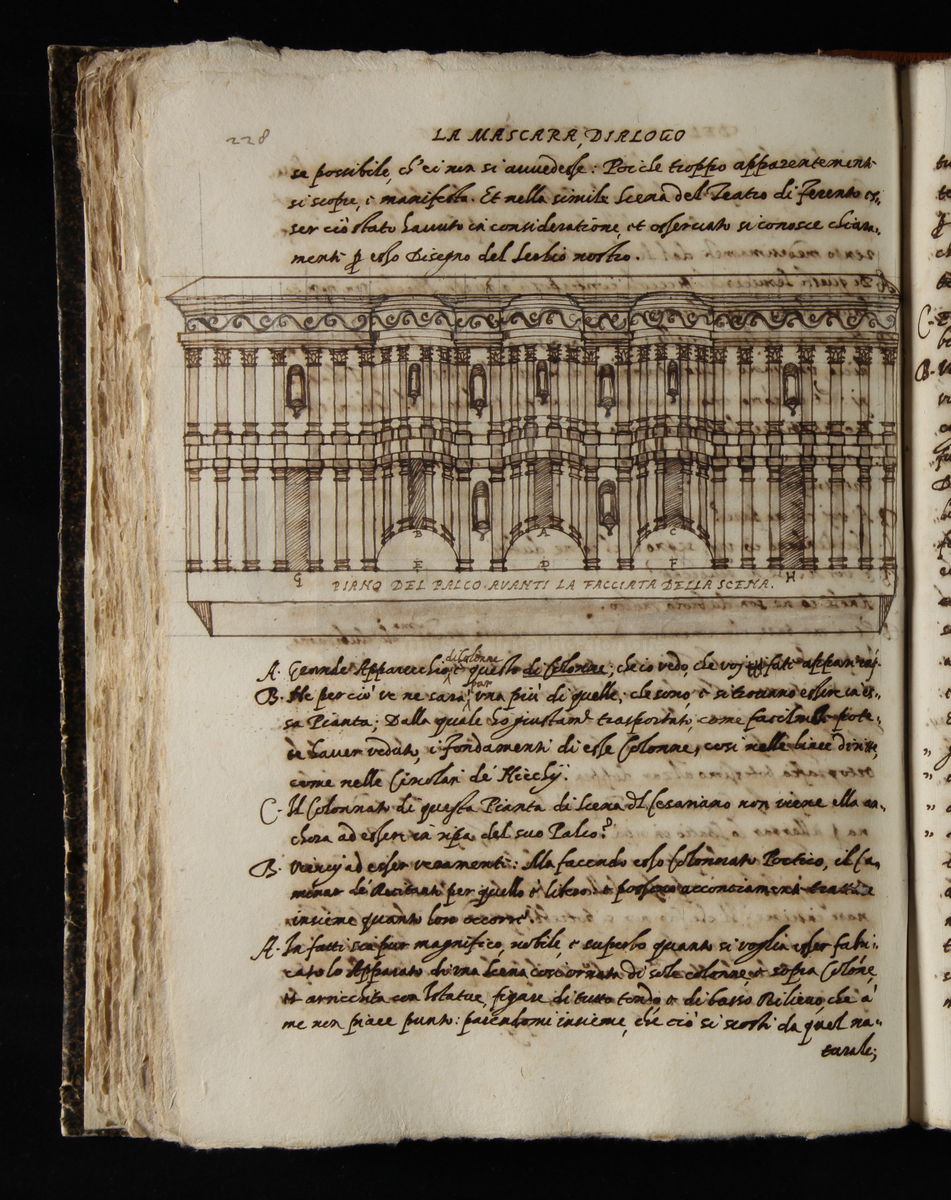 228
LA MASCARA, DIALOGO
se possibile, ch'ei non si avvedesse: Poiche troppo apparentement-
si scopre, e manifesta. Et nella simile scena del Teatro di Ferento es-
ser ciò stato havuto in consideratione, et osservato si conosce chiara-
ment- esso Disegno del Serlio nostro.
B A C
E D F
G H I
PIANO DEL PALCO AVANTI LA FACCIATA DELLA SCENA.
di Colonne
A. Grande Apparecchio, è questo di Colonne; che io vedo, che voi fati
B. Ne perciò ve ne sarà una più di quelle; che sono, e si trovano esser in es-
par
sa Pianta; Dalla quale ho trasportato, come pote-
te haver veduto, i fondamenti di esse Colonne, così nelle linee diritte,
come nelle Circolari de' Nicchij.
C. Il Colonnato di questa Pianta di Scena Cesariano non viene ella an-
chora ad essere in ripa del suo Palco?
B. Vienvj ad esser veramente: Ma facendo esso Colonnato Portico, il Ca-
minar de' Recitanti per quello è libero: e possono acconciament-
insieme quanto loro occorre.
A. In fatti sia pur magnifico, nobile, e superbo quanto si voglia esser fabri-
cato lo Apparato di una Scena così ornata di sole colonne, e sopra Colone,
et arricchita con Statue, figure di tutto tondo, e di basso Rilievo, che à
me non piace punto: parendomi insieme, che ciò si scosti da quel na-
turale;